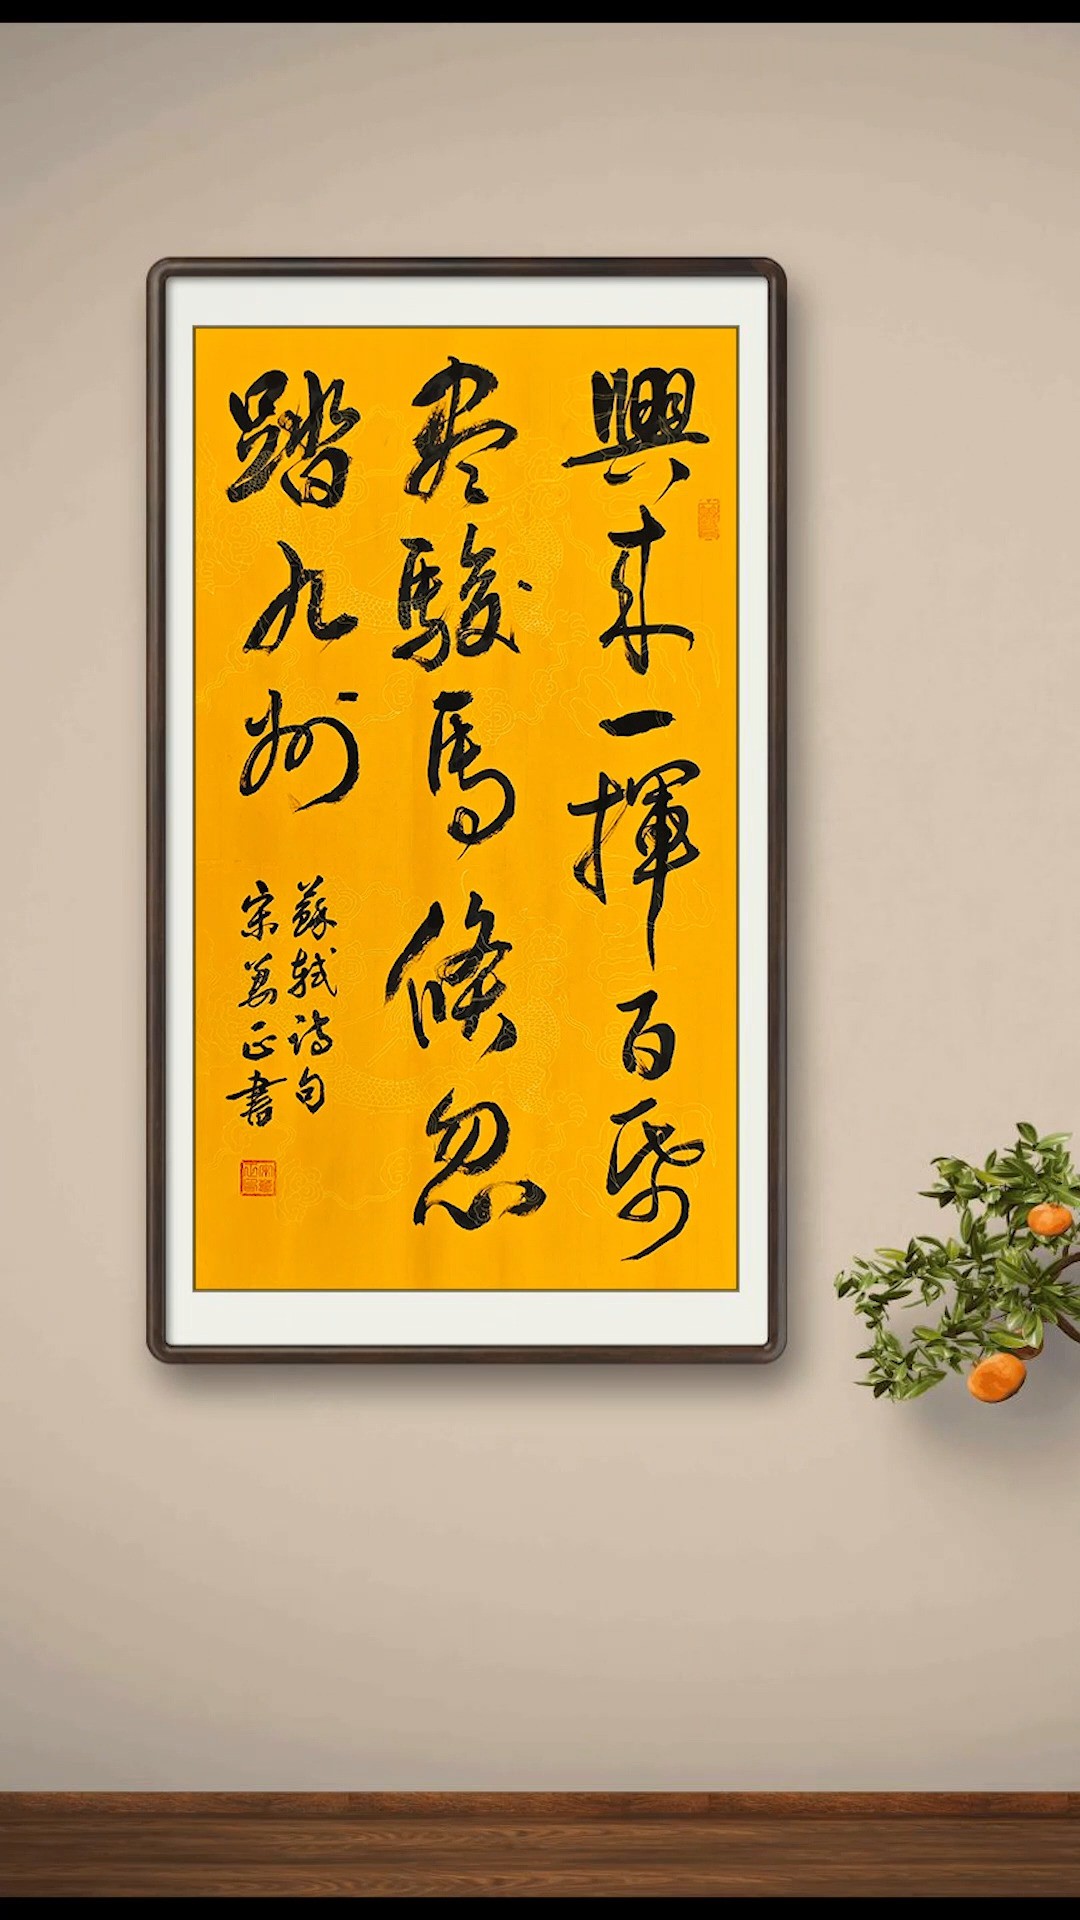 興来一揮百紙
尽駿馬倏忽
踏九州
蘇軾诗句
宋为正書